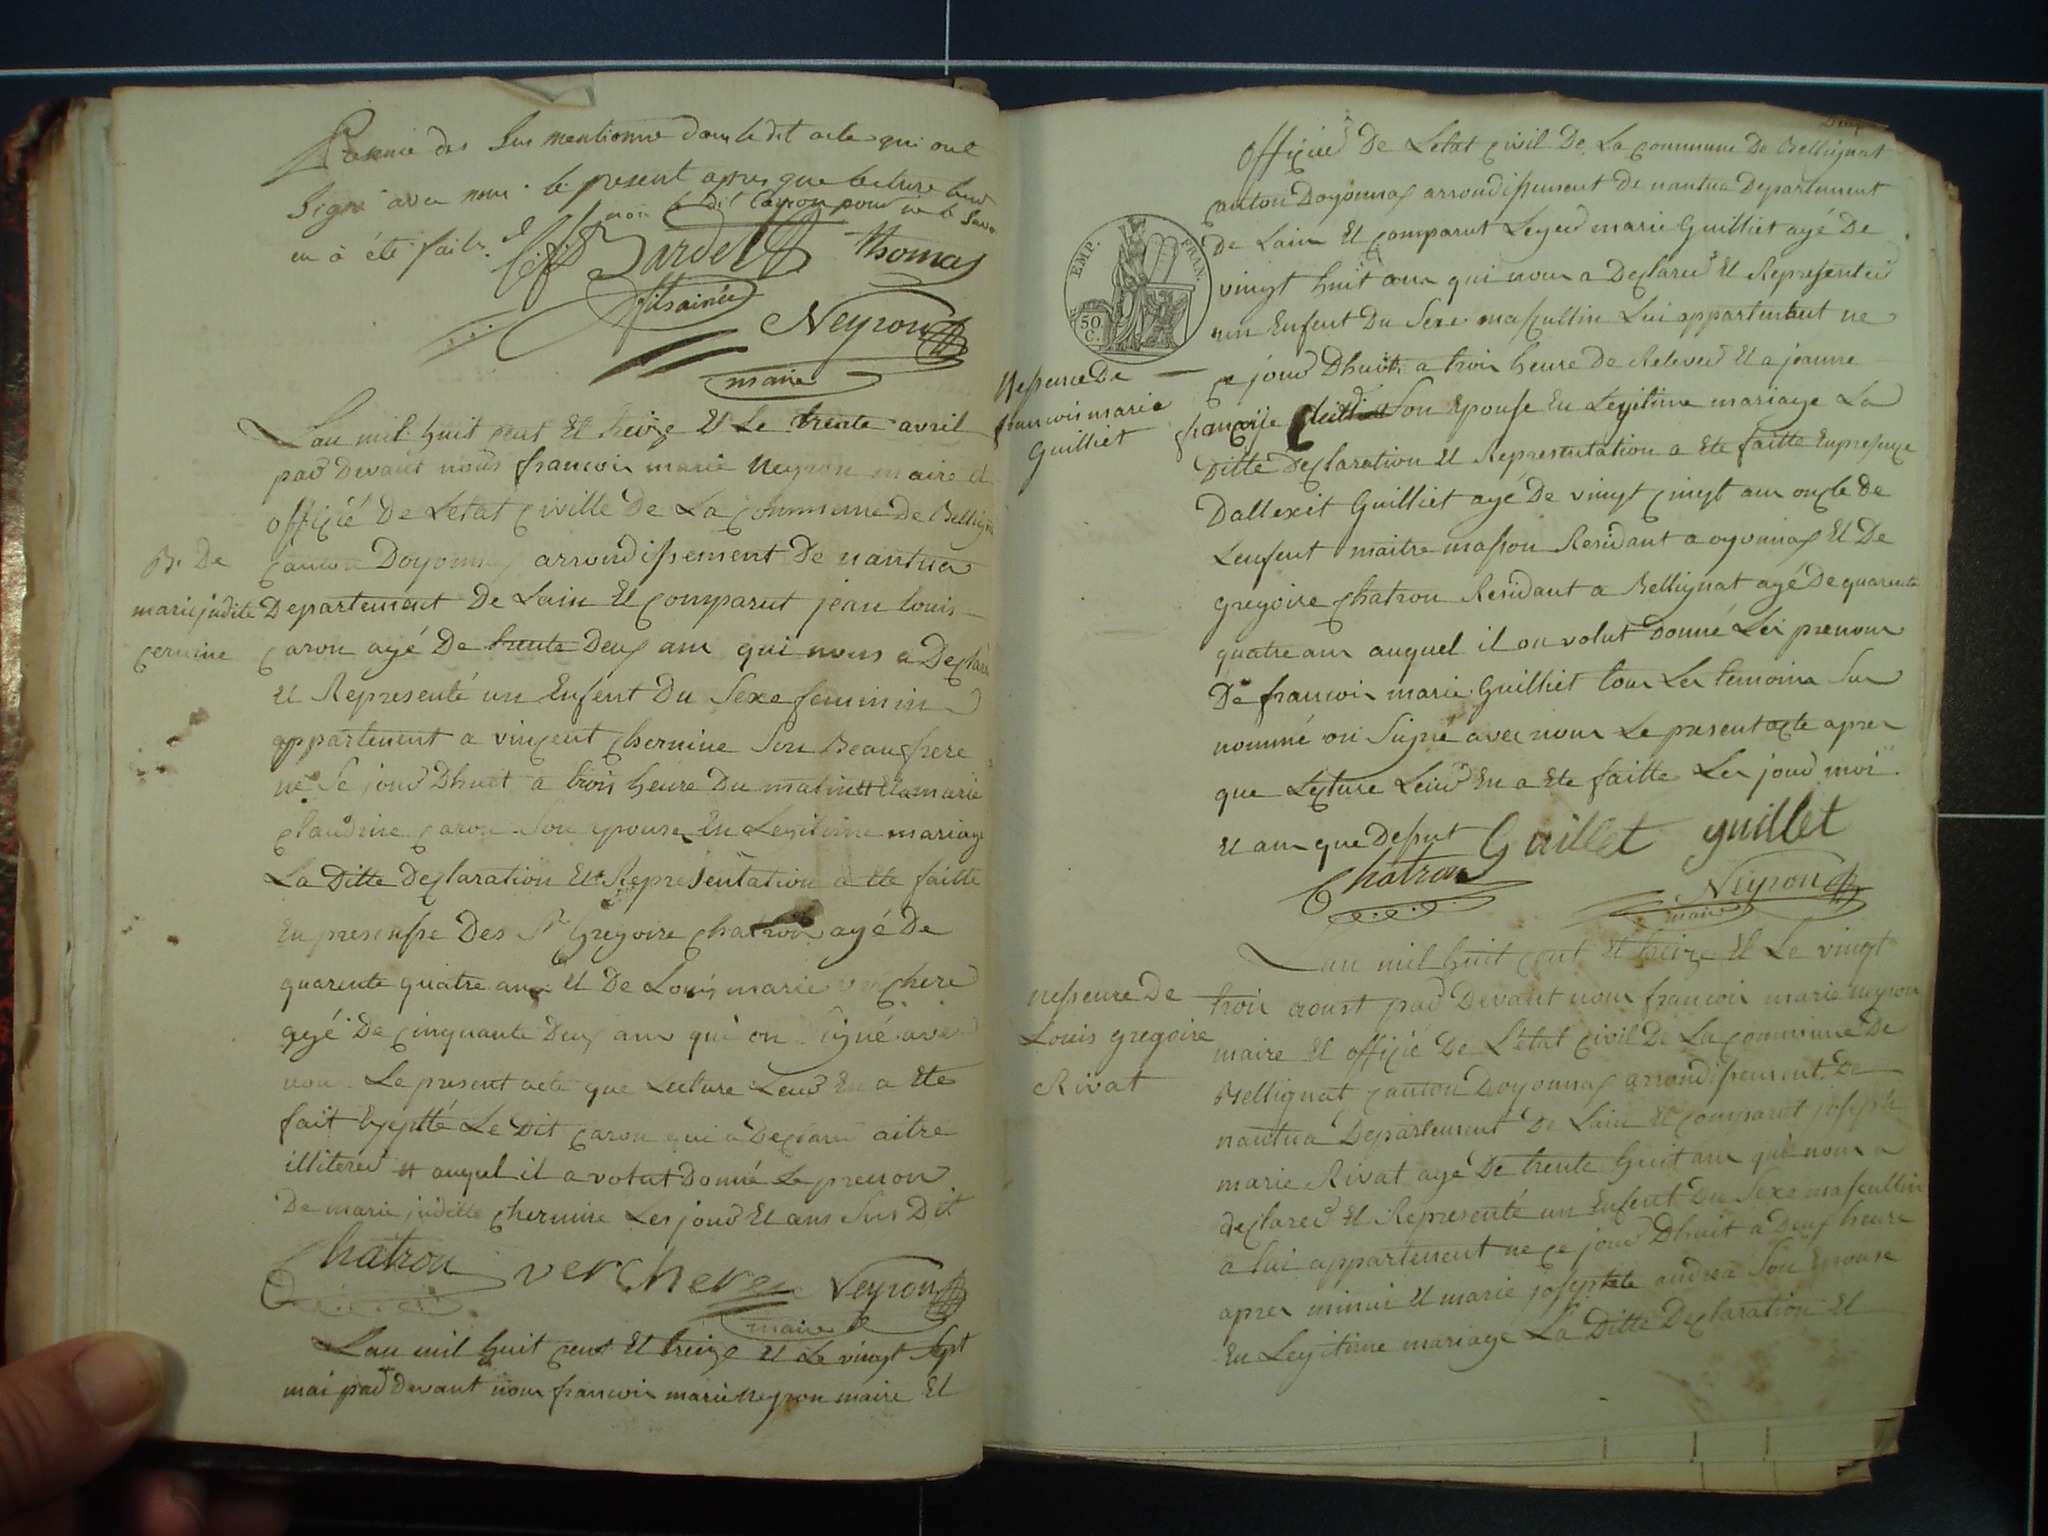 des Sus mentionné dans le dit acte qui ont
Signé avec nous le present apres que lecture leur
non le dit Caron pour ne le Savo
en à été faitte
Bardet thomas
fils ainée
Neyron
maire
Lan mil huit cent Et treize Et Le trente avril
par Devant nous francois marie Neyron maire et
officié De Letat Civille De La Commune De Bellign
B. De
marie judite
cernine
canton Doyonnas arrondissement De nantua
Departement De Lain Et comparut jean louis
caron agé De trente Deux ans qui nous a Declaré
Et Representé un Enfent Du Sexe feminin
appartenent a vincent chernine Son Beaufrere
né Se jour Dhuit a trois heure Du matin Et a marie
claudine caron Son epouse En Legitime mariage
La Ditte declaration Et Representation a Ete faitte
En presensse Des Sr Gregoire chatron agé De
quarente quatre ans Et De Louis marie verchere
agé De cinquante Deux ans qui on Signé avec
nous Le present acte que Lecture Leur En a Ete
fait Exeptté Le Dit caron qui a Declaré aitre
illiteré et auquel il a volut Donné Le prenon
De marie juditte chernine Les jour Et ans Sus Dit
Chatron verchere Neyron
maire
Lan mil huit cent Et treize Et Le vingt Sept
mai par Devant nous francois marie Neyron maire Et
officié De Letat civil De La commune De Bellignat
canton Doyonnas arrondissement De nantua Departement
De Lain Et comparut Le Sieur marie Guilliet agé De
EMP. FRAN.
50
C.
vingt huit ans qui nous a Declaré Et Representé
un Enfent Du Sexe masculin Lui appartenent ne
Nessence De
francois marie
Guilliet
ce jour Dhuit a trois heure De Relevée Et a jeanne
francoise Son Epouse En Legitime mariage La
Ditte Declaration Et Representation a Ete faitte En presence
Dallexit Guilliet agé De vingt cinqt ans oncle de
Lenfent maitre masson Residant a oyonnas Et De
Gregoire chatron Residant a Bellignat agé De quarente
quatre ans auquel il on volut Donné Les prenom
De francois marie Guilliet tous Les temoins Sus
nommé on Signé avec nous Le present acte apres
que Lecture Leur En a Ete faitte Les jour moi
Et ans que Dessut Guillet guillet
Chatron Neyron
maire
Lan mil huit cent Et treize Et Le vingt
nessence De
Louis gregoire
Rivat
trois aoust par Devant nous francois marie neyron
maire Et officié De Létat civil De La commune De
Bellignat canton Doyonnas arrondissement De
nantua Departement De Lain Et comparut joseph
marie Rivat agé De trente huit ans qui nous a
declaré Et Representé un Enfent Du Sexe masculin
a lui appartenent ne ce jour Dhuit a Deux heure
apres minui Et marie josephte andrea Son Epouse
En Legitime mariage La Ditte Declaration Et